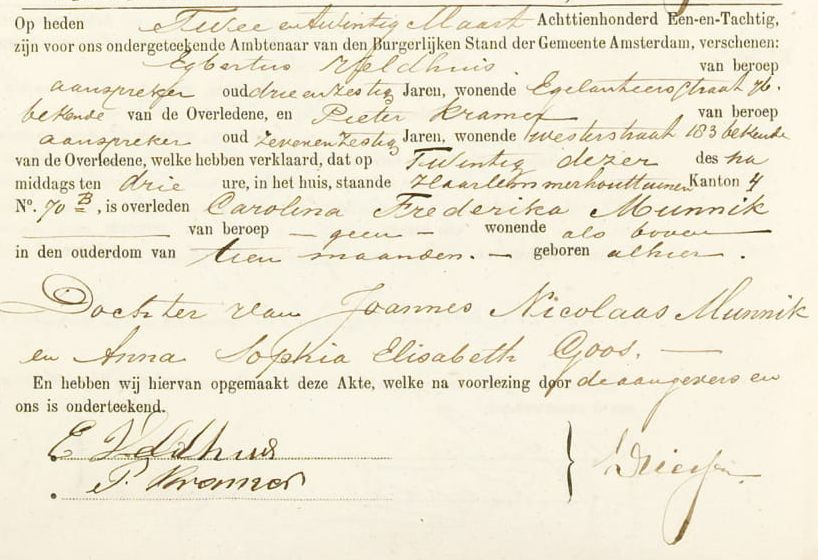 Op heden Twee en twintig Maart Achttienhonderd Een-en-Tachtig,
zijn voor ons ondergeteekende Ambtenaar van den Burgerlijken Stand der Gemeente Amsterdam, verschenen:
Egbertus Veldhuis van beroep
aanspreker oud drie en zestig Jaren, wonende Egelantiersstraat 76.
bekende van de Overledene, en Pieter Kramer van beroep
aanspreker oud zeven en zestig Jaren, wonende Westerstraat 183 bekende
van de Overledene, welke hebben verklaard, dat op Twintig dezer des na
middags ten drie ure, in het huis, staande Haarlemmerhouttuinen Kanton 4
No. 70 B, is overleden Carolina Frederika Munnik
van beroep – geen – wonende als boven
in den ouderdom van tien maanden. – geboren alhier.
Dochter van Joannes Nicolaas Munnik
en Anna Sophia Elisabeth Goos. —
En hebben wij hiervan opgemaakt deze Akte, welke na voorlezing door de aangevers en
ons is onderteekend.
E Veldhuis
P. Kramer